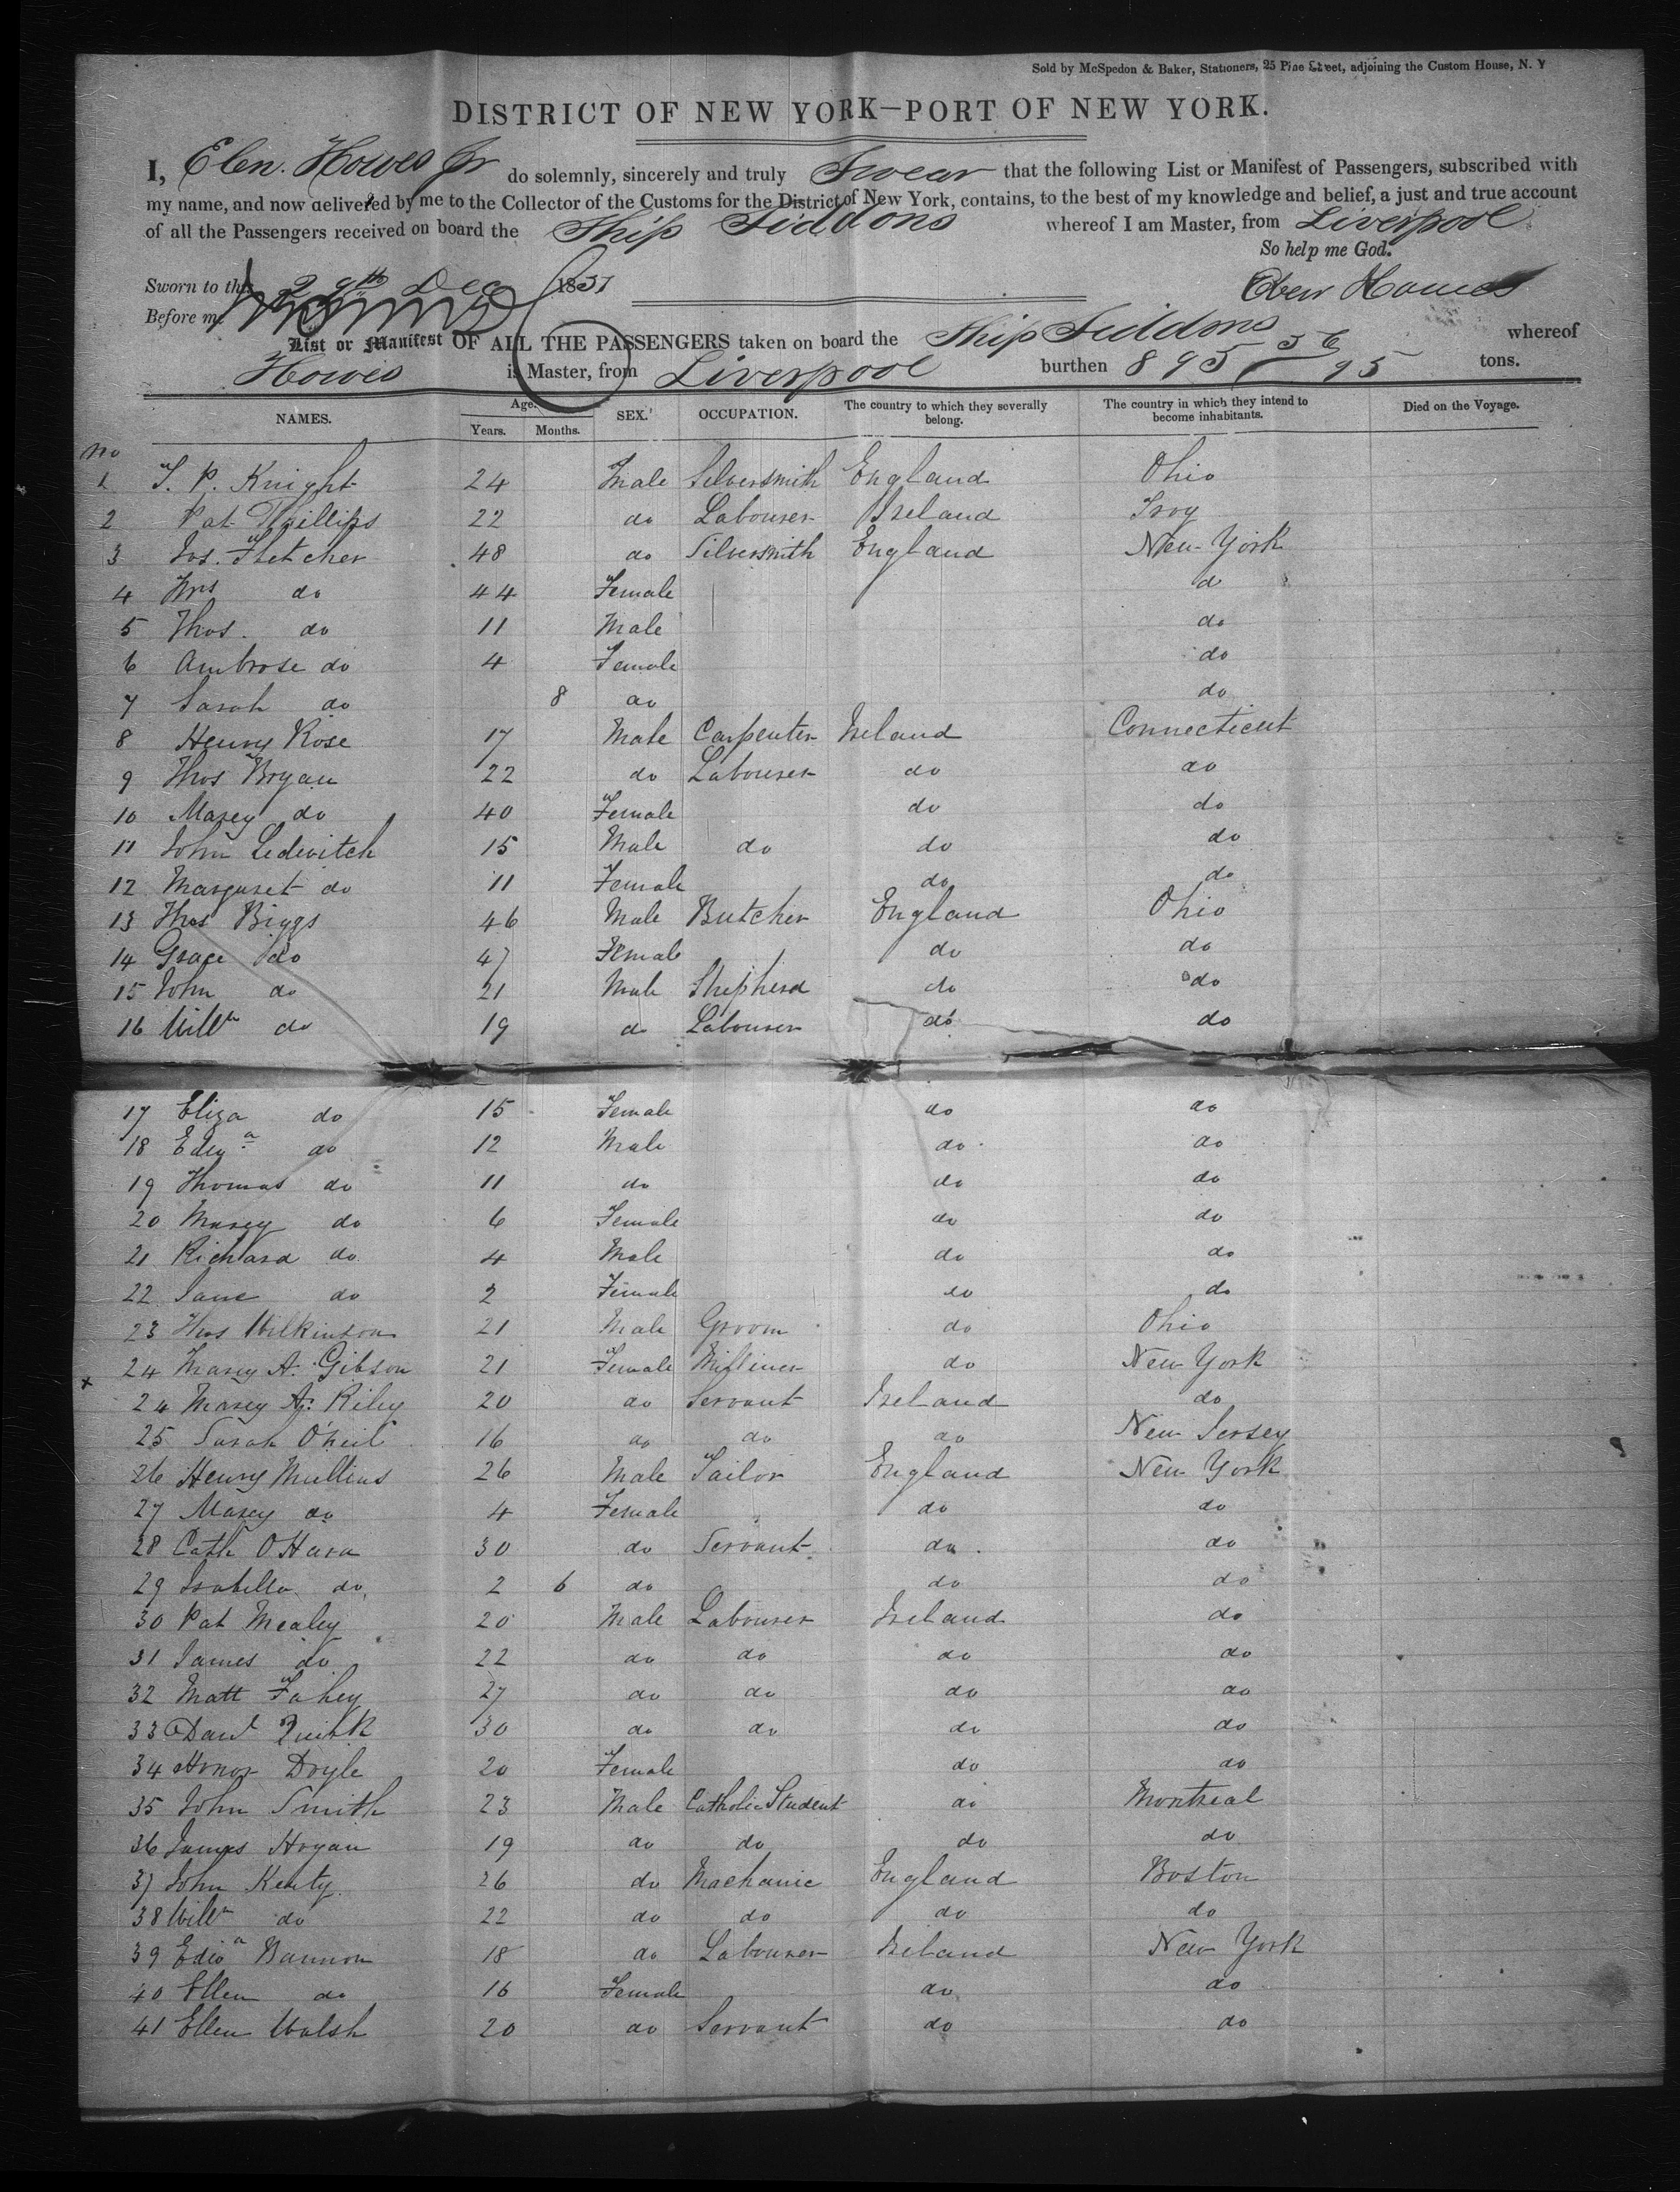 Sold by McSpedon & Baker, Stationers, 25 Pine Street, adjoining the Custom House, N. Y
DISTRICT OF NEW YORK—PORT OF NEW YORK.
I, Eben. Howes Jr do solemnly, sincerely and truly Swear that the following List or Manifest of Passengers, subscribed with
my name, and now delivered by me to the Collector of the Customs for the District of New York, contains, to the best of my knowledge and belief, a just and true account
of all the Passengers received on board the Ship Siddons whereof I am Master, from Liverpool
So help me God.
Sworn to this 29th Dec 1851 Eben Howes
Before me
List or Manifest OF ALL THE PASSENGERS taken on board the Ship Siddons whereof
Howes is Master, from Liverpool burthen 895 36/95 tons.
NAMES. Age. SEX. OCCUPATION. The country to which they severally belong. The country in which they intend to become inhabitants. Died on the Voyage.
Years. Months.
No
1 T. P. Knight 24 Male Silversmith England Ohio
2 Pat Phillips 22 do Labourer Ireland Troy
3 Jos. Fletcher 48 do Silversmith England New York
4 Mrs do 44 Female d
5 Thos. do 11 Male do
6 Ambrose do 4 Female do
7 Sarah do 8 do do
8 Henry Rose 17 Male Carpenter Ireland Connecticut
9 Thos Bryan 22 do Labourer do do
10 Marey do 40 Female do do
11 John Ledevitch 15 Male do do do
12 Margaret do 11 Female do do
13 Thos Biggs 46 Male Butcher England Ohio
14 Grace do 47 Female do do
15 John do 21 Male Shepherd do do
16 Willm do 19 do Labourer do do
17 Eliza do 15 Female do do
18 Edwa do 12 Male do do
19 Thomas do 11 do do do
20 Marey do 6 Female do do
21 Richard do 4 Male do do
22 Jane do 2 Female do do
23 Thos Wilkinson 21 Male Groom do Ohio
x 24 Marey A. Gibson 21 Female Milliner do New York
24 Marey A. Riley 20 do Servant Ireland do
25 Sarah O'neil 16 do do do New Jersey
26 Henry Mullins 26 Male Tailor England New York
27 Marey do 4 Female do do
28 Cath OHara 30 do Servant do do
29 Isabella do 2 6 do do do
30 Pat Mealey 20 Male Labourer Ireland do
31 James do 22 do do do do
32 Matt Fahey 27 do do do do
33 Danl Quirk 30 do do do do
34 Honor Doyle 20 Female do do
35 John Smith 23 Male Catholic Student do Montreal
36 James Hogan 19 do do do do
37 John Kenty 26 do Mechanic England Boston
38 Willm do 22 do do do do
39 Edwa Bannon 18 do Labourer Ireland New York
40 Ellen do 16 Female do do
41 Ellen Walsh 20 do Servant do do